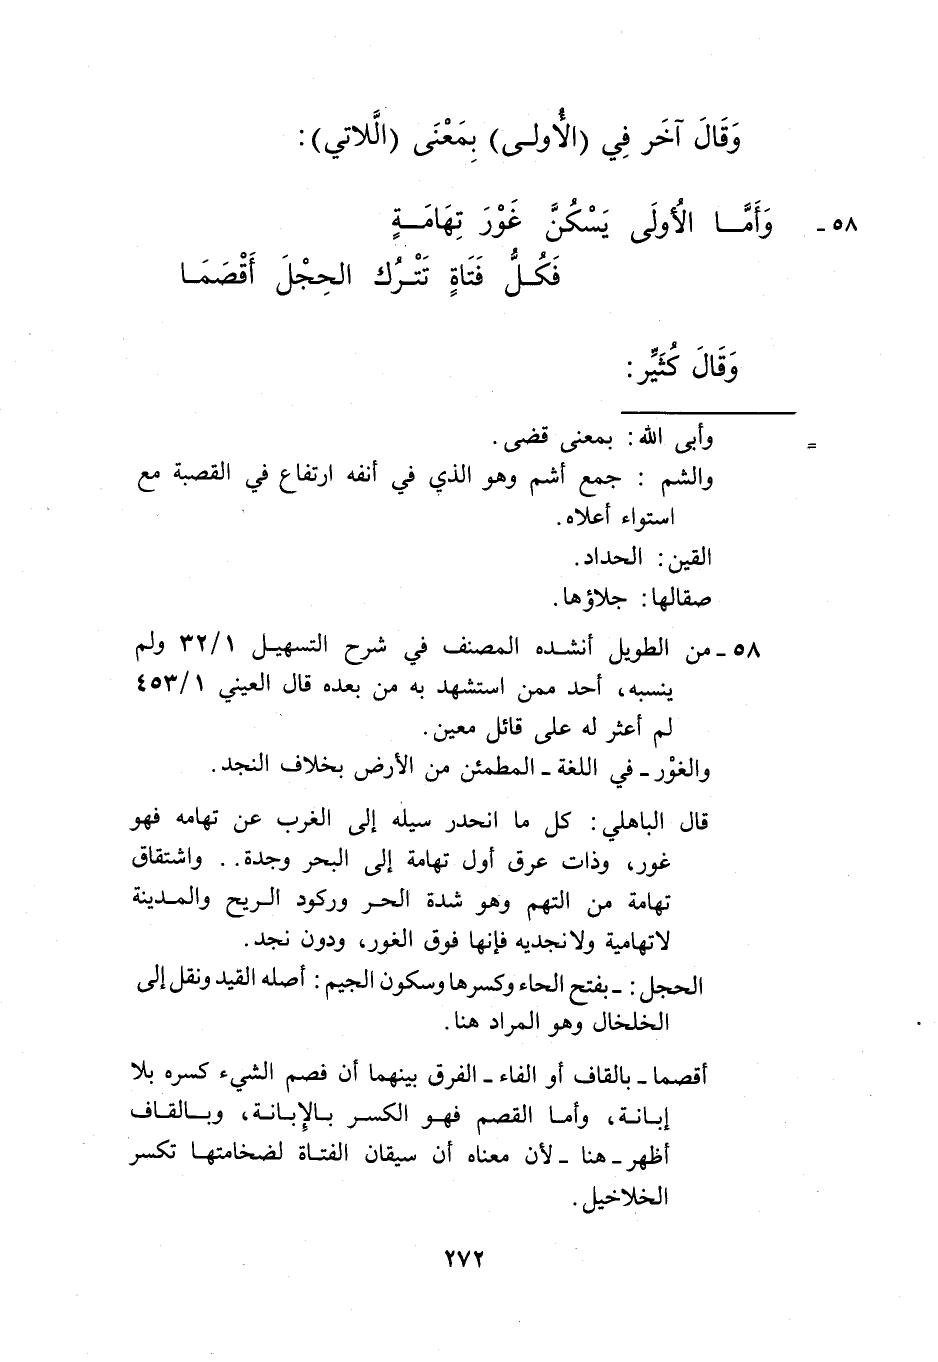 وَقَالَ آخَر فِي (الأُولـى) بِمَعْنَى (الَّلاتي):
٥٨ـ وَأَمَّـــا الُأولَى يَسْكُنَّ غَوْرَ تِهَامَــةٍ
فَكُــلُّ فَتَاةٍ تَتْـرُك الحِجْلَ أَقْصَمَـا
وَقَالَ كُثَيِّر:
= وأبى الله: بمعنى قضى.
والشم : جمع أشم وهو الذي في أنفه ارتفاع في القصبة مع
استواء أعلاه.
القين: الحداد.
صقالها: جلاؤها.
٥٨ـ من الطويل أنشـده المصنف في شرح التسهيـل ٣٢/١ ولم
ينسبه، أحد ممن استشهد به من بعده قال العيني ٤٥٣/١
لم أعثر له على قائل معين.
والغوْر ـ في اللغة ـ المطمئن من الأرض بخلاف النجد.
قال الباهلي: كل ما انحدر سيله إلى الغرب عن تهامه فهو
غور، وذات عرق أول تهامة إلى البحر وجدة.. واشتقاق
تهامة من التهم وهو شدة الحـر وركود الـريح والمـدينة
لاتهامية ولانجديه فإنها فوق الغور، ودون نجد.
الحجل: ـ بفتح الحاء وكسرها وسكون الجيم: أصله القيد ونقل إلى
الخلخال وهو المراد هنا.
أقصما ـ بالقاف أو الفاء ـ الفرق بينهما أن فصم الشيء كسره بلا
إبـانـة، وأمـا القصم فهـو الكسر بـالإِبـانـة، وبـالقـاف
أظهر ـ هنا ـ لأن معناه أن سيقان الفتـاة لضخامتهـا تكسر
الخلاخيل.
٢٧٢